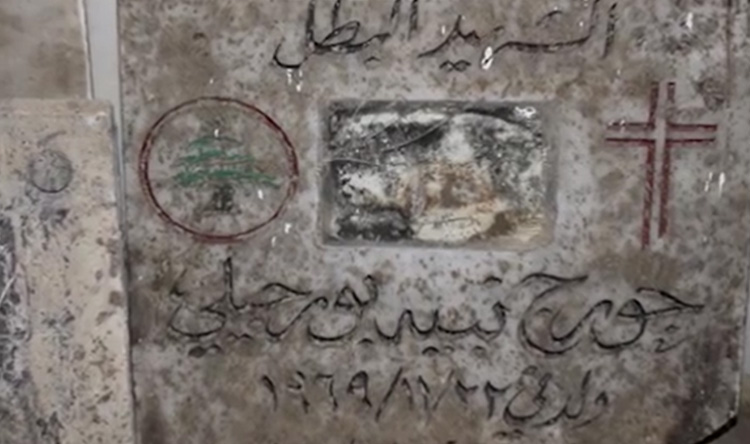 الشهيد البطل
جورج نبيه بورجيلي
ولد في ٢٢/١١/١٩٦٩